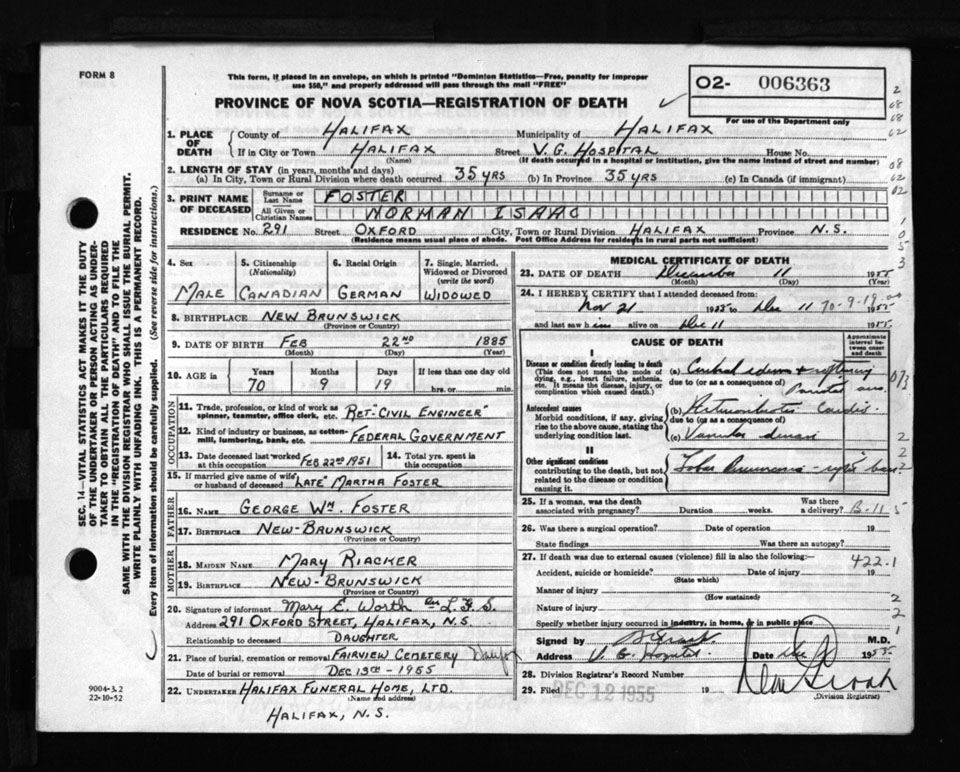 FORM 8
This form, if placed in an envelope, on which is printed "Dominion Statistics—Free, penalty for improper
use $50," and properly addressed will pass through the mail "FREE"
O2- 006363
PROVINCE OF NOVA SCOTIA—REGISTRATION OF DEATH
For use of the Department only
1. PLACE OF DEATH { County of HALIFAX Municipality of HALIFAX
If in City or Town HALIFAX Street V.G. HOSPITAL House No.
(Name) (If death occurred in a hospital or institution, give the name instead of street and number)
2. LENGTH OF STAY (in years, months and days)
(a) In City, Town or Rural Division where death occurred 35 YRS (b) In Province 35 YRS (c) In Canada (if immigrant)
3. PRINT NAME OF DECEASED { Surname or Last Name FOSTER
All Given or Christian Names NORMAN ISAAC
RESIDENCE No. 291 Street OXFORD City, Town or Rural Division HALIFAX Province N.S.
(Residence means usual place of abode. Post Office Address for residents in rural parts not sufficient)
4. Sex
MALE
5. Citizenship
(Nationality)
CANADIAN
6. Racial Origin
GERMAN
7. Single, Married,
Widowed or Divorced
(write the word)
WIDOWED
8. BIRTHPLACE NEW BRUNSWICK
(Province or Country)
9. DATE OF BIRTH FEB 22ND 1885
(Month) (Day) (Year)
10. AGE in { Years Months Days If less than one day
70 9 19 hrs. or min.
OCCUPATION
11. Trade, profession, or kind of work as
spinner, teamster, office clerk, etc. RET-CIVIL ENGINEER
12. Kind of industry or business, as cotton-
mill, lumbering, bank, etc. FEDERAL GOVERNMENT
13. Date deceased last worked
at this occupation FEB 22ND 1951
14. Total yrs. spent in
this occupation
15. If married give name of wife
or husband of deceased "LATE" MARTHA FOSTER
FATHER
16. NAME GEORGE WM. FOSTER
17. BIRTHPLACE NEW-BRUNSWICK
(Province or Country)
MOTHER
18. MAIDEN NAME MARY RIACKER
19. BIRTHPLACE NEW-BRUNSWICK
(Province or Country)
20. Signature of informant Mary E. Worth L.F.S.
Address 291 OXFORD STREET, HALIFAX, N.S.
Relationship to deceased DAUGHTER
21. Place of burial, cremation or removal FAIRVIEW CEMETERY
Date of burial or removal DEC 13TH - 1955
22. UNDERTAKER HALIFAX FUNERAL HOME, LTD.
(Name and address)
HALIFAX, N.S.
MEDICAL CERTIFICATE OF DEATH
23. DATE OF DEATH December 11 1955
(Month) (Day) (Year)
24. I HEREBY CERTIFY that I attended deceased from:
Nov 21 1955 to Dec 11 1955
70-9-19
and last saw him alive on Dec 11 1955
CAUSE OF DEATH
Approximate interval between onset and death
I
Disease or condition directly leading to death
(This does not mean the mode of
dying, e.g., heart failure, asthenia,
etc. It means the disease, injury, or
complication which caused death.)
(a) Cerebral edema +
due to (or as a consequence of)
Antecedent causes
Morbid conditions, if any, giving
rise to the above cause, stating the
underlying condition last.
(b)
due to (or as a consequence of)
(c)
II
Other significant conditions
contributing to the death, but not
related to the disease or condition
causing it.
Lobar Pneumonia - base
25. If a woman, was the death
associated with pregnancy? Duration weeks. Was there a delivery?
B-11
26. Was there a surgical operation? Date of operation 19
State findings Was there an autopsy?
27. If death was due to external causes (violence) fill in also the following:—
422.1
Accident, suicide or homicide? Date of injury 19
(State which)
Manner of injury
(How sustained)
Nature of injury
Specify whether injury occurred in industry, in home, or in public place
Signed by M.D.
Address V. G. Hospital Date Dec 1955
28. Division Registrar's Record Number
29. Filed DEC 12 1955 19
(Division Registrar)
SEC. 14—VITAL STATISTICS ACT MAKES IT THE DUTY
OF THE UNDERTAKER OR PERSON ACTING AS UNDER-
TAKER TO OBTAIN ALL THE PARTICULARS REQUIRED
IN THE "REGISTRATION OF DEATH" AND TO FILE THE
SAME WITH THE DIVISION REGISTRAR WHO SHALL ISSUE THE BURIAL PERMIT.
WRITE PLAINLY WITH UNFADING INK. THIS IS A PERMANENT RECORD.
Every item of information should be carefully supplied. (See reverse side for instructions.)
9004-3.2
22-10-52